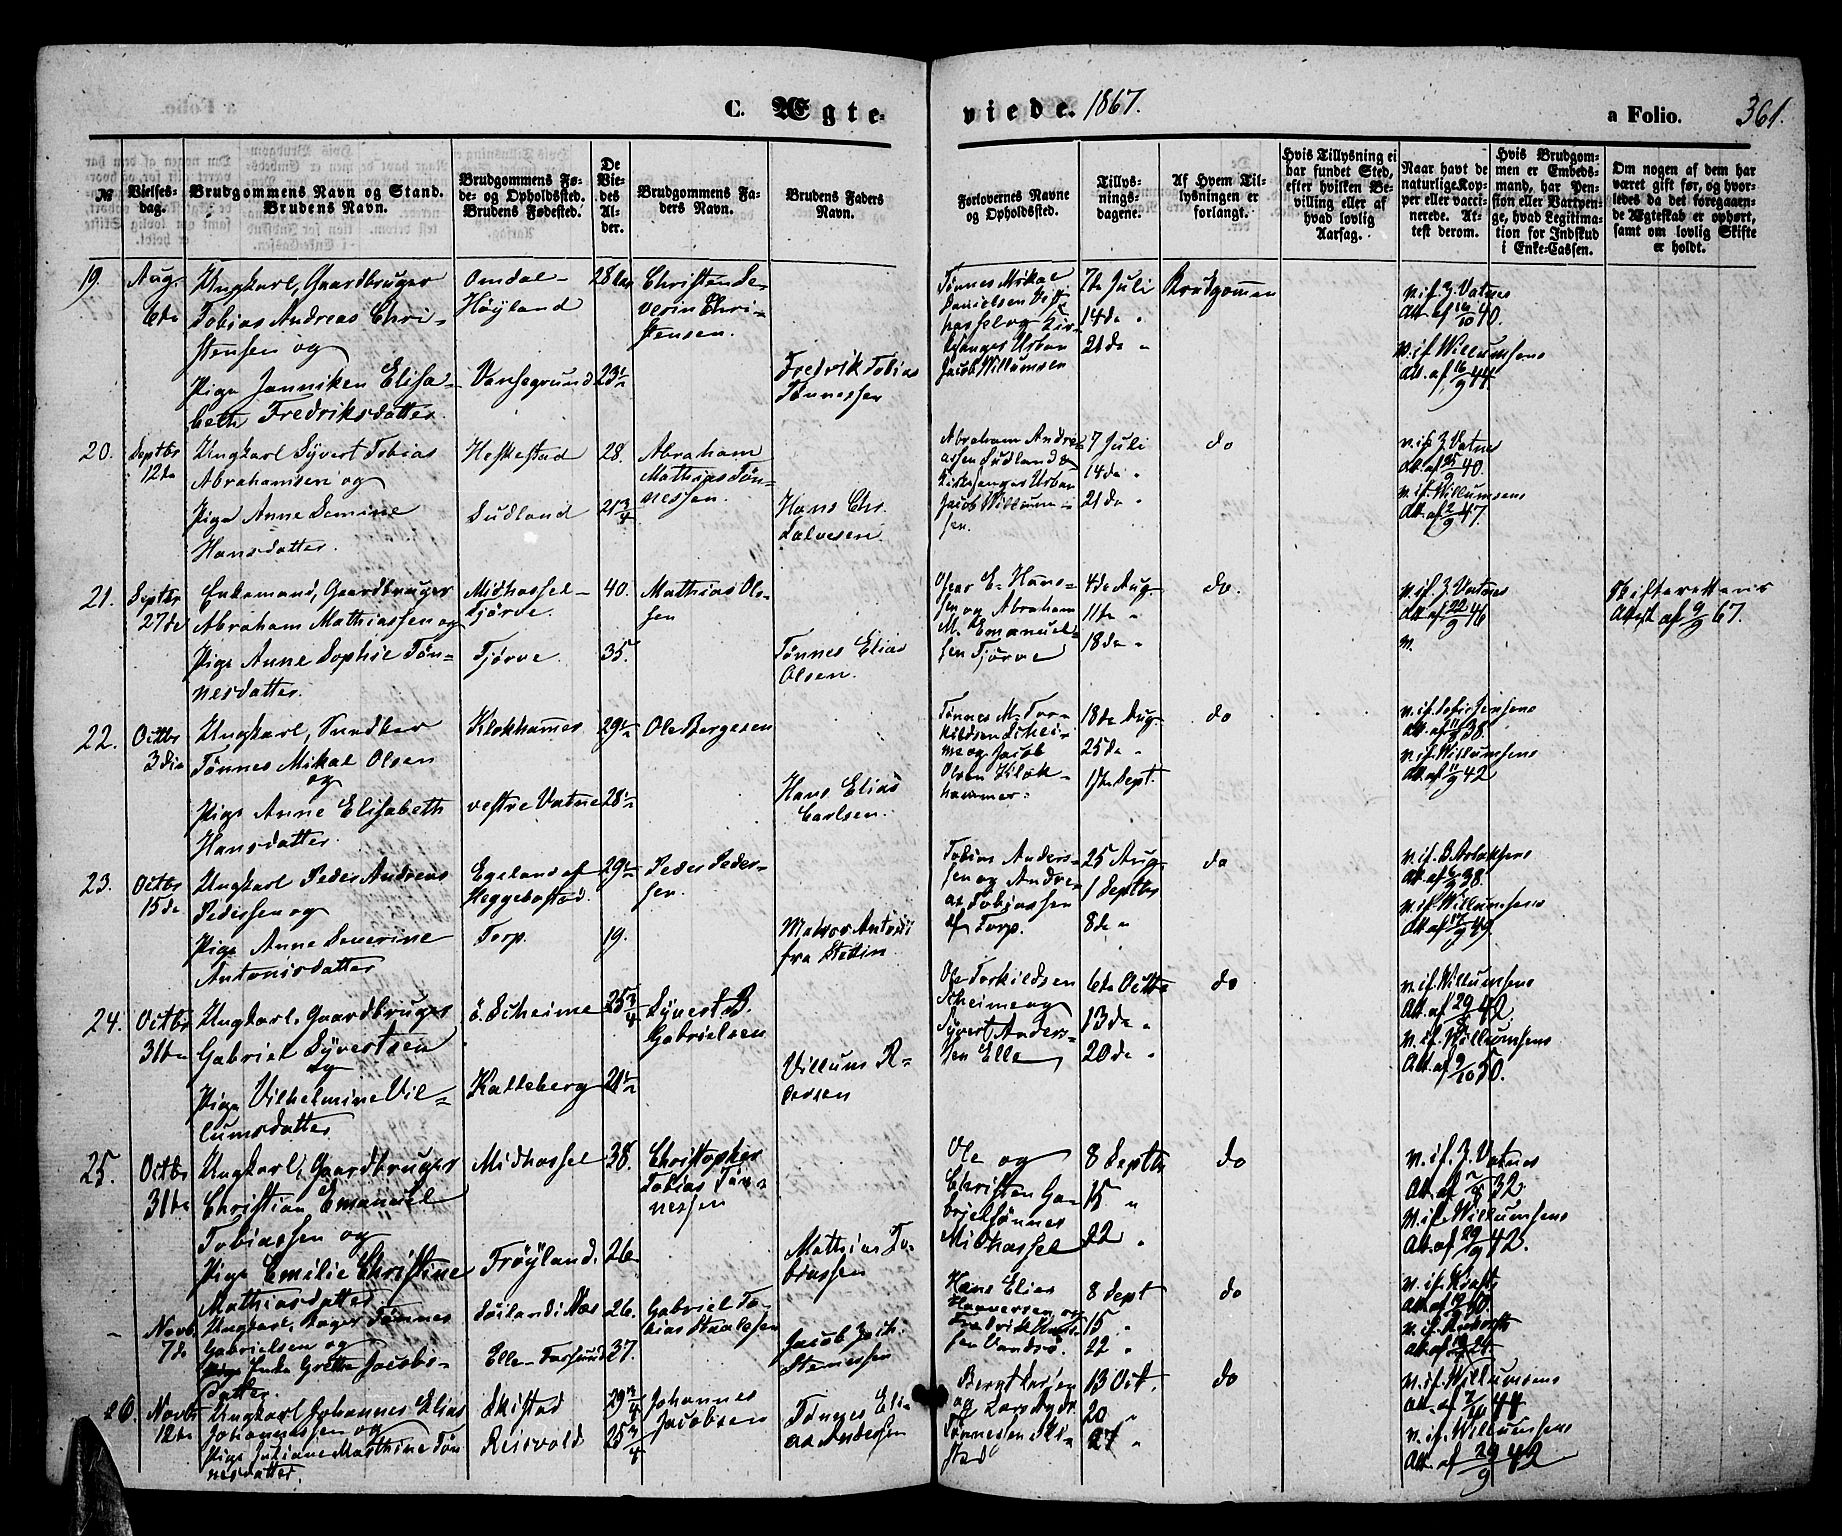 C. Ægteviede. 1867.
a Folio. 361.
№
Vielsesdag.
Brudgommens Navn og Stand. Brudens Navn.
Brudgommens Føde- og Opholdssted. Brudens Fødested.
De Viedes Alder.
Brudgommens Faders Navn.
Brudens Faders Navn.
Forlovernes Navne og Opholdssted.
Tillysningsdagene.
Af Hvem Tillysningen er forlangt.
Hvis Tillysning ei har fundet Sted, efter hvilken Bevilling eller af hvad lovlig Aarsag.
Naar havt de naturlige Kopper eller vaccinerede. Attest derom.
Hvis Brudgommen er Embedsmand, har Pension eller Vartpenge, hvad Legitimation for Indskud i Enke-Cassen.
Om nogen af dem har været gift før, og hvorledes da det foregaaende Ægteskab er ophørt, samt om lovlig Skifte er holdt.
19. Aug. 6te
Ungkarl, Gaardbruger
Tobias Andreas Chri-
stensen og
Pige Janniken Elisa-
beth Fredriksdatter
Omdal-
Høyland
Vansegrund 23 1/2
Christen Se-
verin Chri-
stensen.
Fredrik Tobias
Tønnessen
Tønnes Mikal
Danielsen Vest-
hassel og Kir-
kesanger Urban
Jacob Willumsen
7de Juli
14de "
21de "
Brudgommen
v. if. Z. Vatnes
Att. af 16/10 40.
v. if. Willumsens
Att. af 16/9 44.
20. Septbr 12te
Ungkarl Syvert Tobias
Abrahamsen og
Pige Anne Semine
Hansdatter.
Heskestad
Sudland
28.
21 3/4
Abraham
Mathias Tøn-
nessen.
Hans Chr.
Salvesen.
Abraham Andre-
assen Sudland &
Kirkesanger Urban
Jacob Willum-
sen.
7 Juli
14de "
21de "
do
v. if. Z. Vatnes
Att. af 25/9 40.
v. if. Willumsens
Att. af 2/9 47.
21. Septbr 27de
Enkemand, Gaardbruger
Abraham Mathiassen og
Pige Anne Sophie Tøn-
nesdatter.
Midhassel-
Tjørve.
Tjørve.
40.
35.
Mathias Ol-
sen
Tønnes Elias
Olsen.
Peer E. Han-
sen og Abraham
M. Emanuel-
sen Tjørve
4de Aug.
11te "
18de "
do.
v. if. Z. Vatnes
Att. af 22/9 46
v.
Skifterettens
Attest af 9/9 67.
22. Octbr 3die
Ungkarl,
Tønnes Mikal Olsen
og
Pige Anne Elisabeth
Hansdatter
Klokhamer
vestre Vatne
29 1/2
28 1/2
Ole Bergesen
Hans Elias
Carlsen.
Tønnes M. Tor-
kildsen Schei-
me og Jacob
Olsen Klok-
hammer.
18de Aug.
25de "
1ste Sept.
do
Att. af 11/8 38.
v. if. Willumsens
Att. af 11/9 42
23. Octbr 15de
Ungkarl Peder Andreas
Pedersen og
Pige Anne Severine
Antonisdatter
Egeland af
Heggebostad.
Torp.
29 1/2
19.
Peder Peder-
sen.
Matros Antoni
fra Stettin
Tobias Anders-
sen og Andre-
as Tobiassen
af Torp.
25 Aug.
1 Septbr
8de "
do
v. if. B. Aslaksens
Att. af 38.
v. if. Willumsens
Att. af 17/9 49.
24. Octbr 31te
Ungkarl, Gaardbruger
Gabriel Syvertsen
og
Pige Vilhelmine Vil-
lumsdatter
ø. Scheime
Katteberg
25 3/4
21 1/2
Syvert B.
Gabrielsen
Villum R-
Ole Torkildsen
Scheime og
Syvert Anders-
sen Elle
6te Octbr
13de "
20de "
do
v. if. Willumsens
Att. af 29/8 42.
v. if. Willumsens
Att. af 2/10 50.
25. Octbr 31te
Ungkarl, Gaardbruger
Christian Emanuel
Tobiassen og
Pige Emilie Christine
Mathiasdatter
Midhassel
Frøyland.
38.
26
Christopher
Tobias Tøn-
nessen
Mathias To-
biassen
Ole og
Christen Ga-
brielsønner
Midhassel
8 Septbr
15 "
22 "
do
v. if. Z. Vatnes
Att. af 7/8 32
v. if. Willumsens
Att. af 29/9 42.
- Novb. 7de
Ungkarl, Tønnes
Gabrielsen og
Pige Grethe Jacobs-
datter.
Elle-Farsund
26.
37.
Gabriel To-
bias Staalesen
Jacob Joch.
Hans Elias
Haaversen og
Fredrik
sen Vandsø.
8 Sept
15 "
22 "
do
26. Novbr 12te
Ungkarl Johannes Elias
Johannessen og
Pige Juliane Marthine Tøn-
nesdatter.
Skistad
Reisvold
29 3/4
25 3/4
Johannes
Jacobsen
Tønnes Eli-
as Andersen
Bernt Larsen
og
Tønnessen Ski-
stad
13 Oct.
20 "
27 "
do
v. if. Willumsens
Att. af 7/10 44
v. if. Willumsens
Att. af 29/9 42